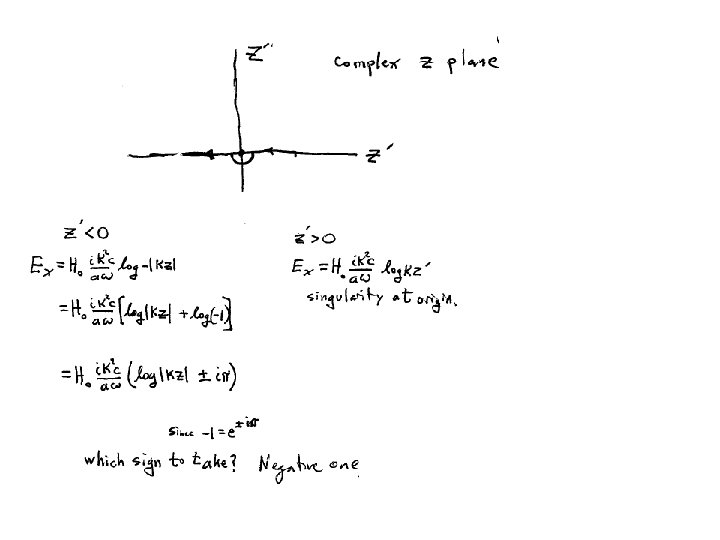 z''
complex z plane
z'
z'<0
E_x = H_0 ik²c/aω log -|kz|
= H_0 ik²c/aω [log|kz| + log(-1)]
= H_0 ik²c/aω (log|kz| ± iπ)
since -1 = e^{±iπ}
which sign to take? Negative one
z'>0
E_x = H_0 ik²c/aω log kz'
singularity at origin.